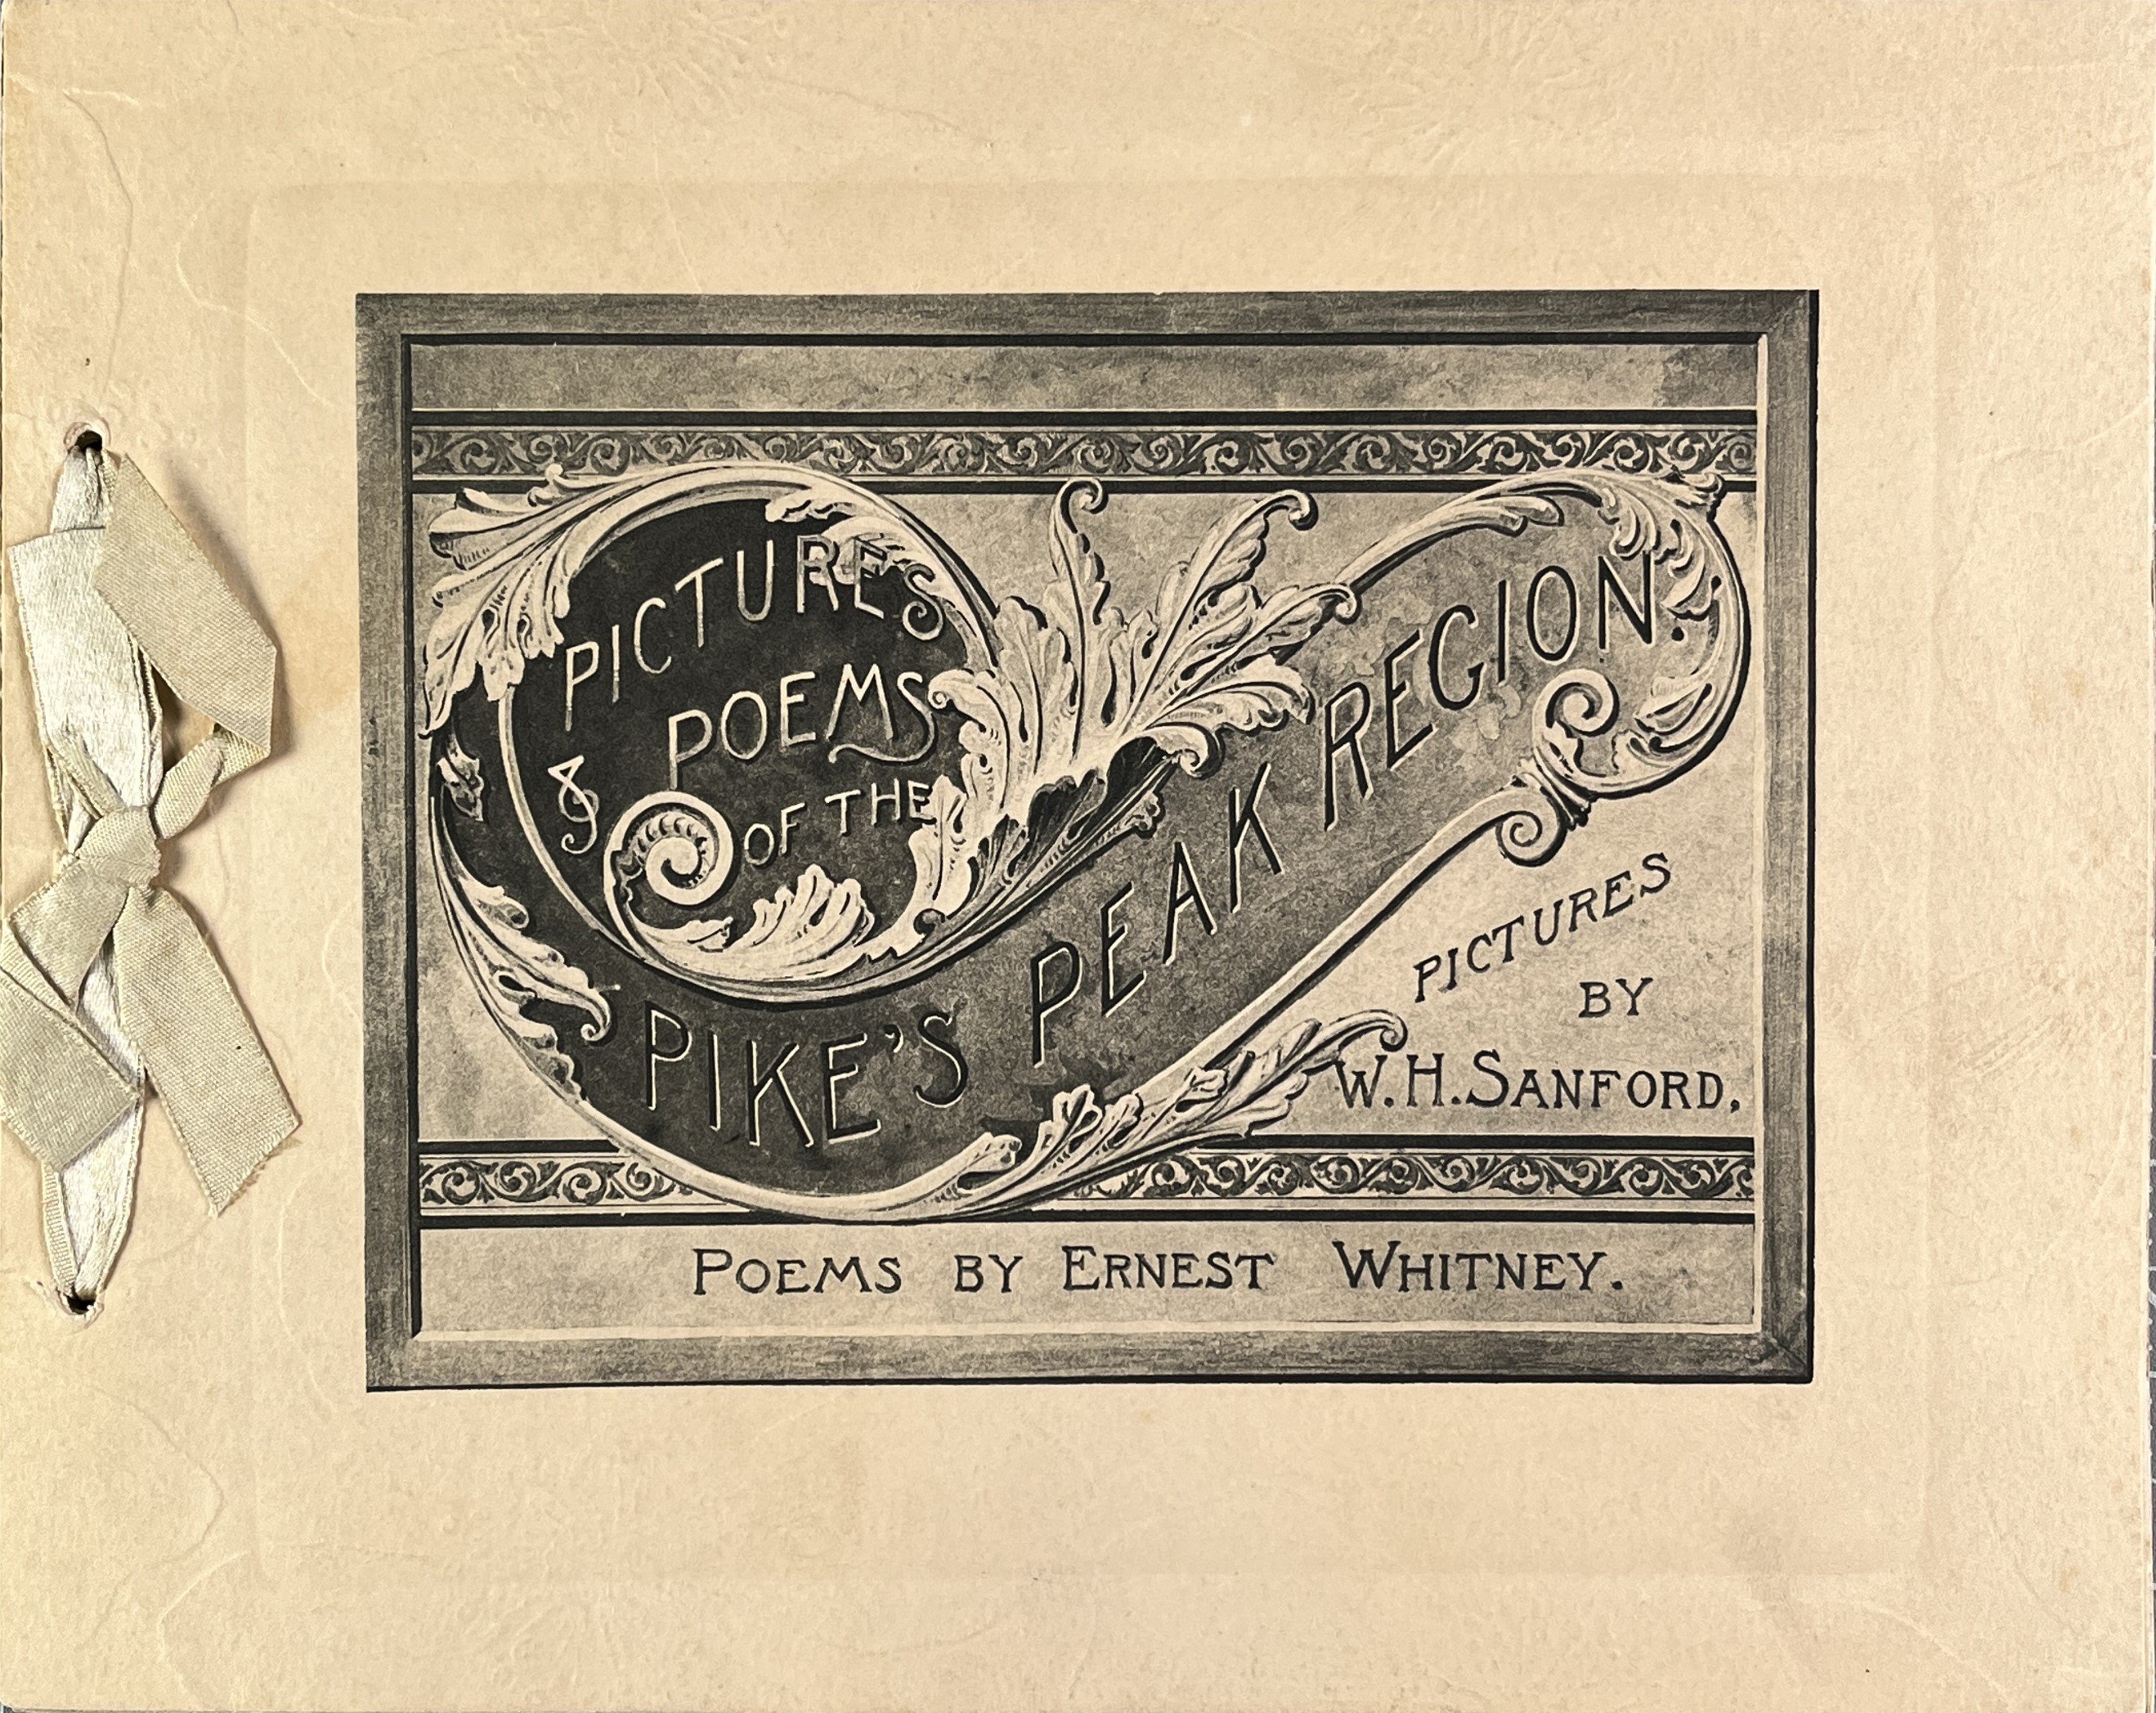 PICTURES
& POEMS
OF THE
PIKE'S PEAK REGION.
PICTURES
BY
W. H. SANFORD,
POEMS BY ERNEST WHITNEY.